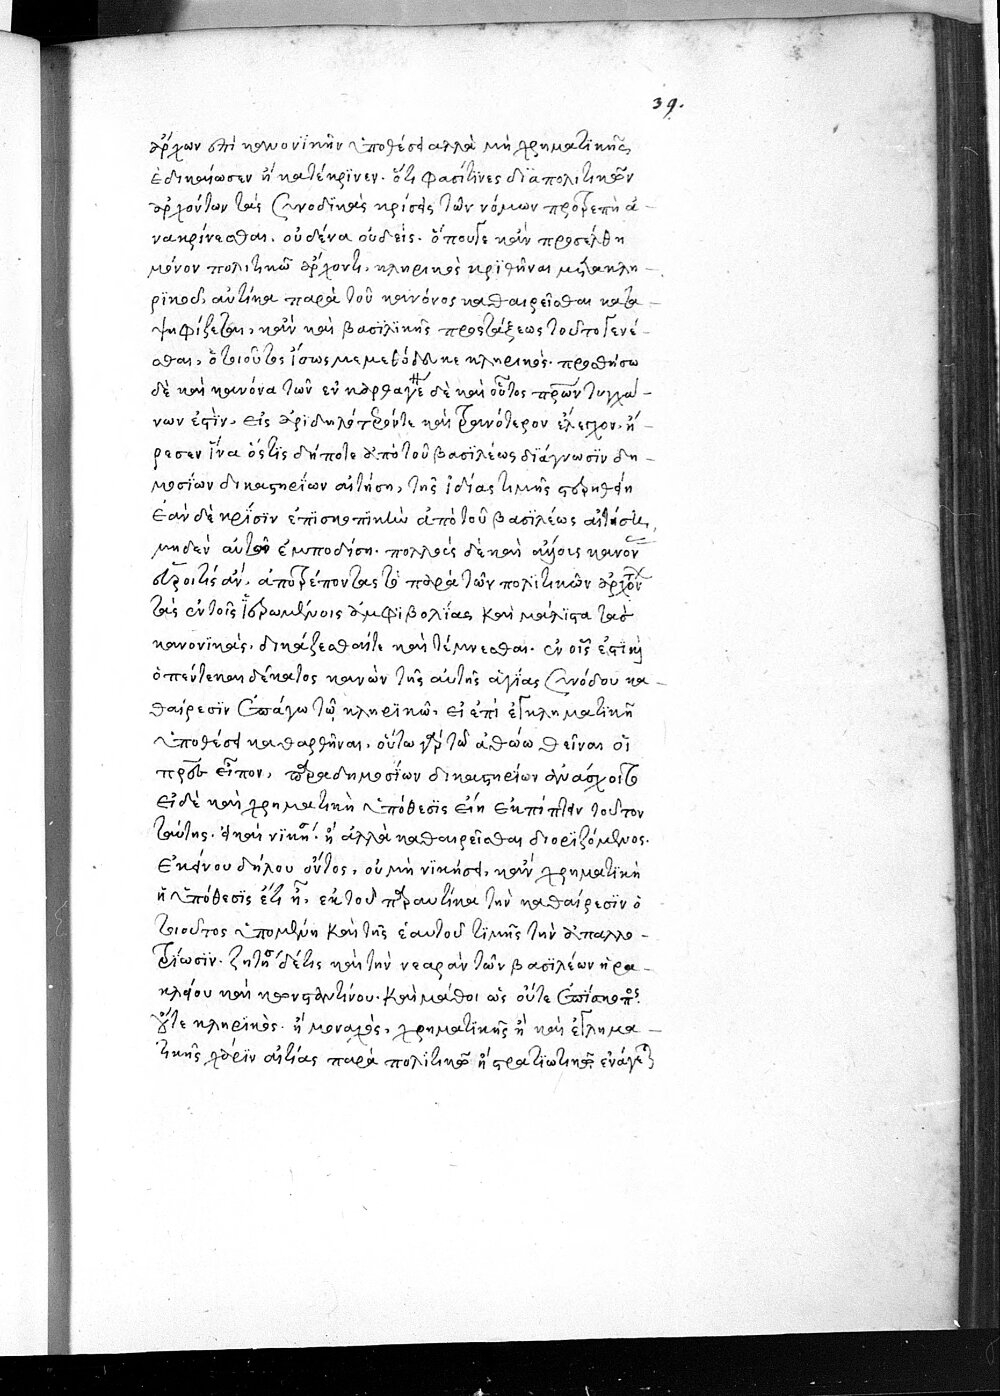 39.
ἄρχων ἐπὶ κανονϊκῆν ὑποθέσει ἀλλὰ μὴ χρηματϊκῆς
ἐδικαίωσεν ἢ κατέκρϊνεν. ὅτι φασίτϊνες διαπολιτικῶν
ἀρχόντων τὰς συνοδϊκὰς κρίσεις τῶν νόμων προτρεπὴ ἀ-
νακρίνεσθαι. οὐδένα οὐδείς. ὅπουγε κἂν προσέλθη
μόνον πολιτικῶ ἄρχοντι, κληρικὸς κριθῆναι μετακλη-
ρϊκοῦ, αὐτίκα παρὰ τοῦ κανόνος καθαιρεῖσθαι κατα-
ψηφίζεται, κἂν καὶ βασϊλϊκῆς προςτάξεως τοῦτο γενέ-
σθαι, ὁ τοιοῦτος ἴσως μεμεθόδευκε κληρικός. προθήσω
δὲ καὶ κανόνα τῶν ἐν καρθαγένη δὲ καὶ οὗτος πρῶτον τυγχά-
νων ἐστὶν, εἰς ἀρϊδηλότερόν τε καὶ τρανότερον ἔλεγχον. ἤ-
ρεσεν ἵνα ὅςτϊς δήποτε ἀπὸ τοῦ βασϊλέως δϊάγνωσϊν δη-
μοσίων δικαστηρίων αἰτήση, τῆς ἰδίας τιμῆς στερηθείη
ἐὰν δὲ κρίσϊν ἐπϊσκοπϊκὴν ἀπὸ τοῦ βασϊλέως αἰτήσει,
μηδὲν αὐτῶ ἐμποδίση. πολλοῖς δὲ καὶ ἄλλοις κανόνων
εὕροι τίς ἂν, ἀποτρέποντας τὸ παρὰ τῶν πολϊτικῶν ἀρχόντων
τὰς ἐν τοῖς ἱερωμένοις ἀμφϊβολίας καὶ μάλϊστα τὰς
κανονϊκὰς, δικάζεσθαίτε καὶ τέμνεσθαι. ἐν οἷς ἐστὶ καὶ
ὁ πεντεκαιδέκατος κανὼν τῆς αὐτῆς ἁγίας συνόδου κα-
θαίρεσϊν ἐπάγω τῶ κληρϊκῶ, εἰ ἐπὶ ἐγκληματϊκῆ
ὑποθέσει καθαρθῆναι, οὕτω γὰρ τῶ ἀθώω θεῖναι οἱ
πρὸς εἶπον, παραδημοσίων δικαστηρίων ἀνάσχοιτο
εἰ δὲ καὶ χρηματϊκὴ ὑπόθεσϊς εἴη ἐκπίπτειν τοῦτον
ταύτης. εἰ καὶ νϊκήσει ἢ ἀλλὰ καθαιρεῖσθαι διορϊζόμενος.
ἐκείνου δήλου ὄντος, οὐ μὴ νϊκήσει, κἂν χρηματϊκὴ
ἡ ὑπόθεσϊς ἔτι ἦ, ἐκ τοῦ παραυτίκα τὴν καθαίρεσϊν ὁ
τοιοῦτος ὑπομένη καὶ τῆς ἑαυτοῦ τϊμῆς τὴν ἀπαλλο-
τρίωσϊν. ζητησάτω δέ τϊς καὶ τὴν νεαρὰν τῶν βασϊλέων ἡρα-
κλείου καὶ κωνσταντίνου. καὶ μάθοι ὡς οὔτε ἐπίσκοπος.
οὔτε κληρϊκός. ἢ μοναχὸς, χρηματϊκῆς ἢ καὶ ἐγκλημα-
τϊκῆς χάρϊν αἰτίας παρὰ πολϊτικῶ ἢ στρατϊωτϊκῶ ἐνάγεται